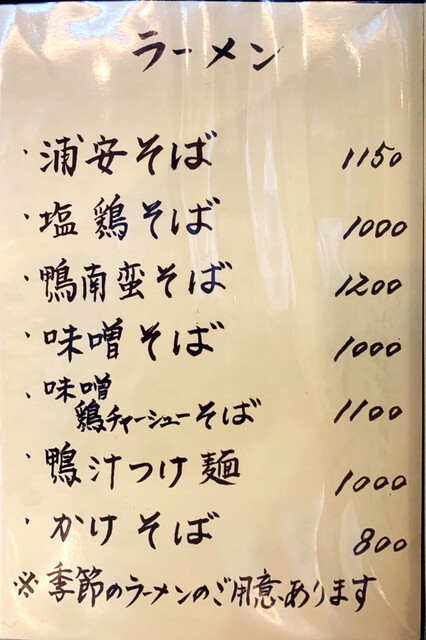 ラーメン
・浦安そば 1150
・塩鶏そば 1000
・鴨南蛮そば 1200
・味噌そば 1000
・味噌
鶏チャーシューそば 1100
・鴨汁つけ麺 1000
・かけそば 800
※季節のラーメンのご用意あります